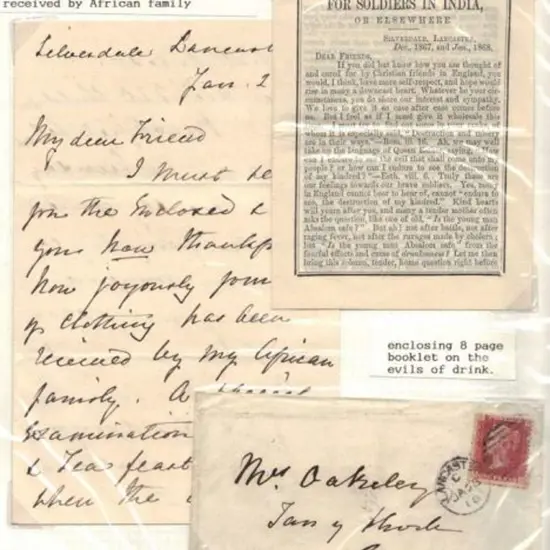 received by African family
Silverdale Lancas
Jan. 2
My dear Friend
I must se
you the Enclosed &
you how thankf
how joyously your
of clothing has been
received by my African
family. A
Examination
& Tea feast
when the
FOR SOLDIERS IN INDIA,
OR ELSEWHERE
SILVERDALE, LANCASTER,
Dec., 1867, and Jan., 1868.
DEAR FRIENDS,
If you did but know how you are thought of
and cared for by Christian friends in England, you
would, I think, have more self-respect, and hope would
rise in many a downcast heart. Whatever be your cir-
cumstances, you do share our interest and sympathy.
We love to give it as case after case comes before
us. But I feel as if I must give it wholesale this
where it is especially said, "Destruction and misery
are in their ways."—Rom. iii. 16. Ah, we may well
take up the language of Queen Esther, saying, "How
can I endure to see the evil that shall come unto my
people? or how can I endure to see the destruction
of my kindred?"—Esth. viii. 6. Truly these are
our feelings towards our brave soldiers. Yes, many
in England cannot bear to hear of, cannot "endure to
see, the destruction of my kindred." Kind hearts
will yearn after you, and many a tender mother often
asks the question, like one of old, "Is the young man
Absalom safe?" But ah! not after battle, not after
raging fever, not after the ravages made by cholera;
but "Is the young man Absalom safe" from the
fearful effects and curse of drunkenness? Let me then
bring this solemn, tender, home question right before
enclosing 8 page
booklet on the
evils of drink.
Mrs Oakeley
Tan y
LANCASTER
C
JA